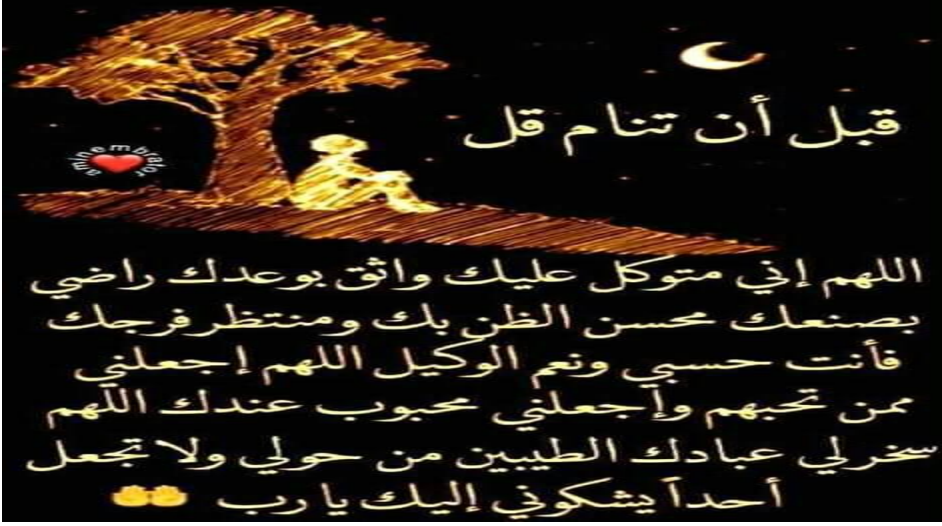 قبل أن تنام قل
amine m brator
اللهم إني متوكل عليك واثق بوعدك راضي
بصنعك محسن الظن بك ومنتظر فرجك
فأنت حسبي ونعم الوكيل اللهم إجعلني
ممن تحبهم وإجعلني محبوب عندك اللهم
سخر لي عبادك الطيبين من حولي ولا تجعل
أحداً يشكوني إليك يا رب 🤲